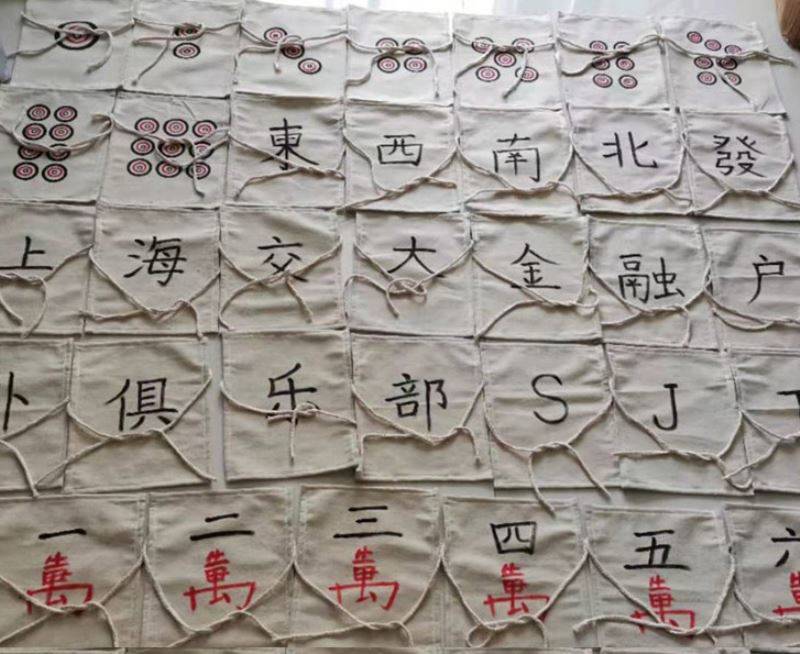 東 西 南 北 發
上 海 交 大 金 融 户
卜 俱 乐 部 S J
一 二 三 四 五 六
萬 萬 萬 萬 萬